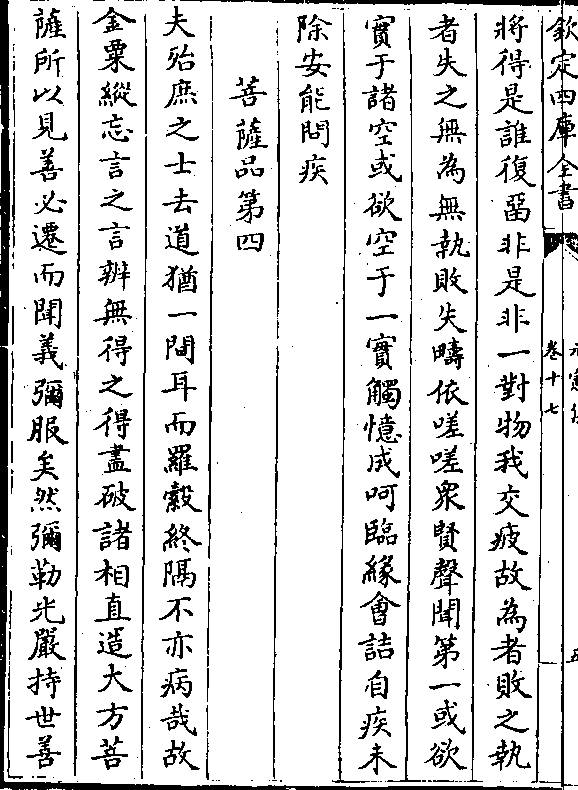 欽定四庫全書
卷十七
將得是誰復㗁非是非一對物我交疲故為者敗之執
者失之無為無執敗失疇依嗟嗟衆賢聲聞第一或欲
實于諸空或欲空于一實觸憶成呵臨緣會詰自疾未
除安能問疾
菩薩品第四
夫殆庶之士去道猶一間耳而羅縠終隔不亦病哉故
金粟縱忘言之言辨無得之得盡破諸相直造大方菩
薩所以見善必遷而聞義彌服矣然彌勒光嚴持世善